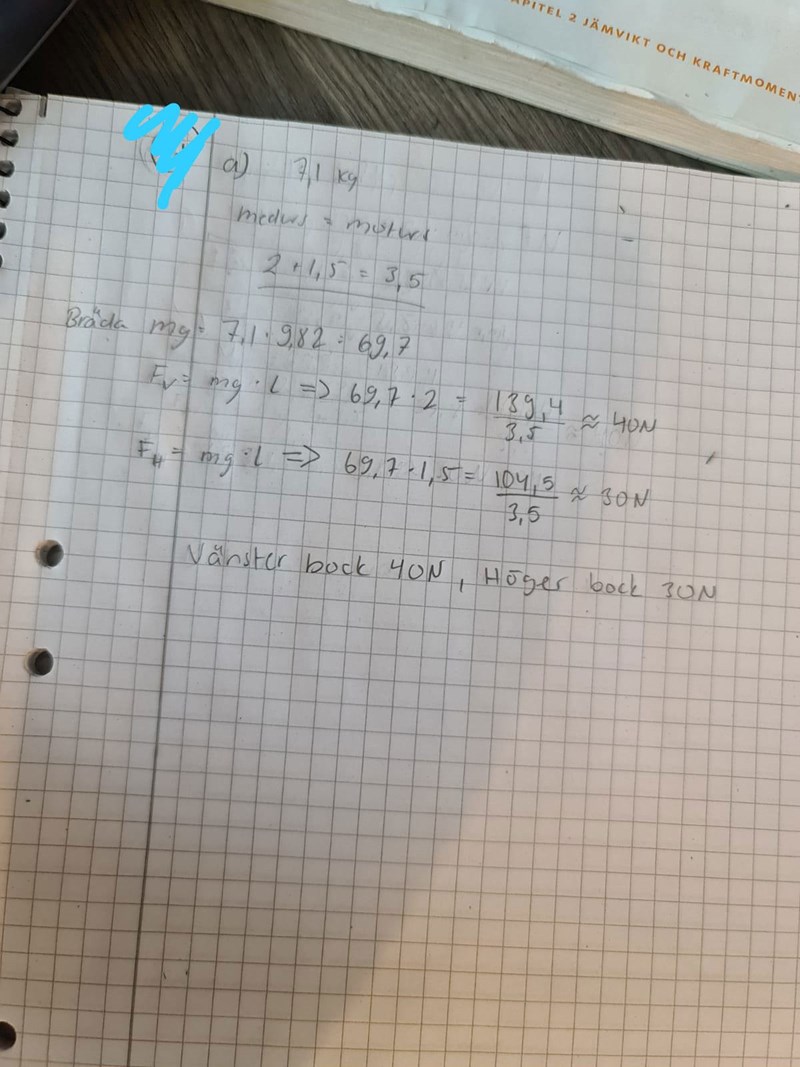 APITEL 2 JÄMVIKT OCH KRAFTMOMEN
a) 7,1 kg
medurs = moturs
2 + 1,5 = 3,5
Bräda mg = 7,1 · 9,82 = 69,7
Fv = mg · l => 69,7 · 2 = 139,4 / 3,5 ≈ 40N
FH = mg · l => 69,7 · 1,5 = 104,5 / 3,5 ≈ 30N
Vänster bock 40N, Höger bock 30N